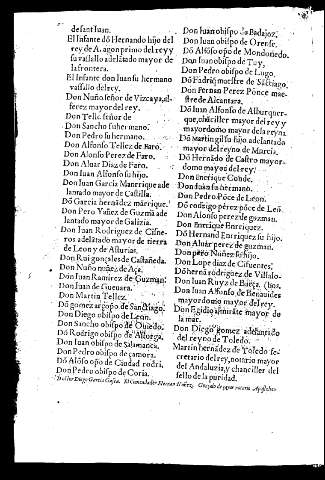 de sant Iuan.
El Infante dõ Hernando hijo del
rey de Aragon primo del rey y
su vasallo adelãtado mayor de
la frontera.
El infante don Iuan su hermano
vassallo del rey.
Don Nuño señor de Vizcaya, al-
ferez mayor del rey.
Don Tello señor de
Don Sancho su hermano.
Don Pedro su hermano.
Don Alfonso Tellez de Faro.
Don Alonso Perez de Faro.
Don Aluar Diaz de Faro.
Don Iuan Alfonso su hijo.
Don Iuan Garcia Manrrique ade
lantado mayor de Castilla.
Dõ Garcia hernãdez mãrrique.
Don Pero Yañez de Guzmã ade
lantado mayor de Galizia.
Don Iuan Rodriguez de Cisne-
ros adelãtado mayor de tierra
de Leon y de Asturias.
Don Rui gonçales de Castañeda.
Don Nuño nuñez de Aça.
Don Iuan Ramirez de Guzman.
Don Iuan de Gueuara.
Don Martin Tellez.
Dõ gomez arçobispo de Santiago.
Don Diego obispo de Leon.
Don Sancho obispo de Ouiedo.
Dõ Rodrigo obispo de Astorga.
Don Iuan obispo de Salamanca.
Don Pedro obispo de çamora.
Dõ Alõso obispo de Ciudad rodri.
Don Pedro obispo de Coria.
Don Iuan obispo de Badajoz.
Don Iuan obispo de Orense.
Dõ Alõso obispo de Mondoñedo.
Don Iuan obispo de Tuy,
Don Pedro obispo de Lugo.
Dõ Fadriq̃ maestre de Sãtiago.
Don Fernan Perez Põnce mae-
stre de Alcantara.
Dõ Iuan Alfonso de Alburquer-
que, chãciller mayor del rey y
mayordomo mayor de la reyna
Dõ Martin gil su hijo adelantado
mayor del reyno de Murcia.
Dõ Hernãdo de Castro mayor-
domo mayor del rey.
Don Enrique Conde.
Don Iuan su hermano.
Don Pedro Põce de Leon.
Dõ rodrigo pérez põce de Leõ
Don Alonso perez de guzman.
Don Enrique Enrriquez.
Dõ Hernand Enrriquez su hijo.
Don Aluar perez de guzman.
Don pero Nuñez su hijo.
Don Lope diaz de Cifuentes,
Dõ hernã rodrigez de Villalo-
Don Iuan Ruyz de Baeça. (bos,
Don Iuan Alfonso de Benauides
mayordomo mayor del rey.
Don Egidio almirãte mayor de
la mar.
Don Diego gomez adelantado
del reyno de Toledo.
Martin hernãdez de Toledo se-
cretario del rey, notario mayor
del Andaluzia, y chanciller del
sello de la puridad.
Doctor Diego Garcia El Comendador Hernan Nuñez.